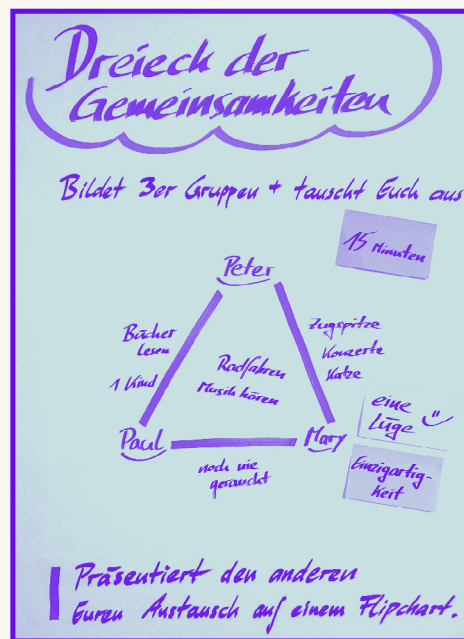 Dreieck der
Gemeinsamkeiten
Bildet 3er Gruppen + tauscht Euch aus
15 Minuten
Peter
Bücher
lesen
1 Kind
Radfahren
Musik hören
Zugspitze
Konzerte
Katze
Paul
Mary
noch nie
geraucht
eine
Lüge
Einzigartig-
keit
Präsentiert den anderen
Euren Austausch auf einem Flipchart.